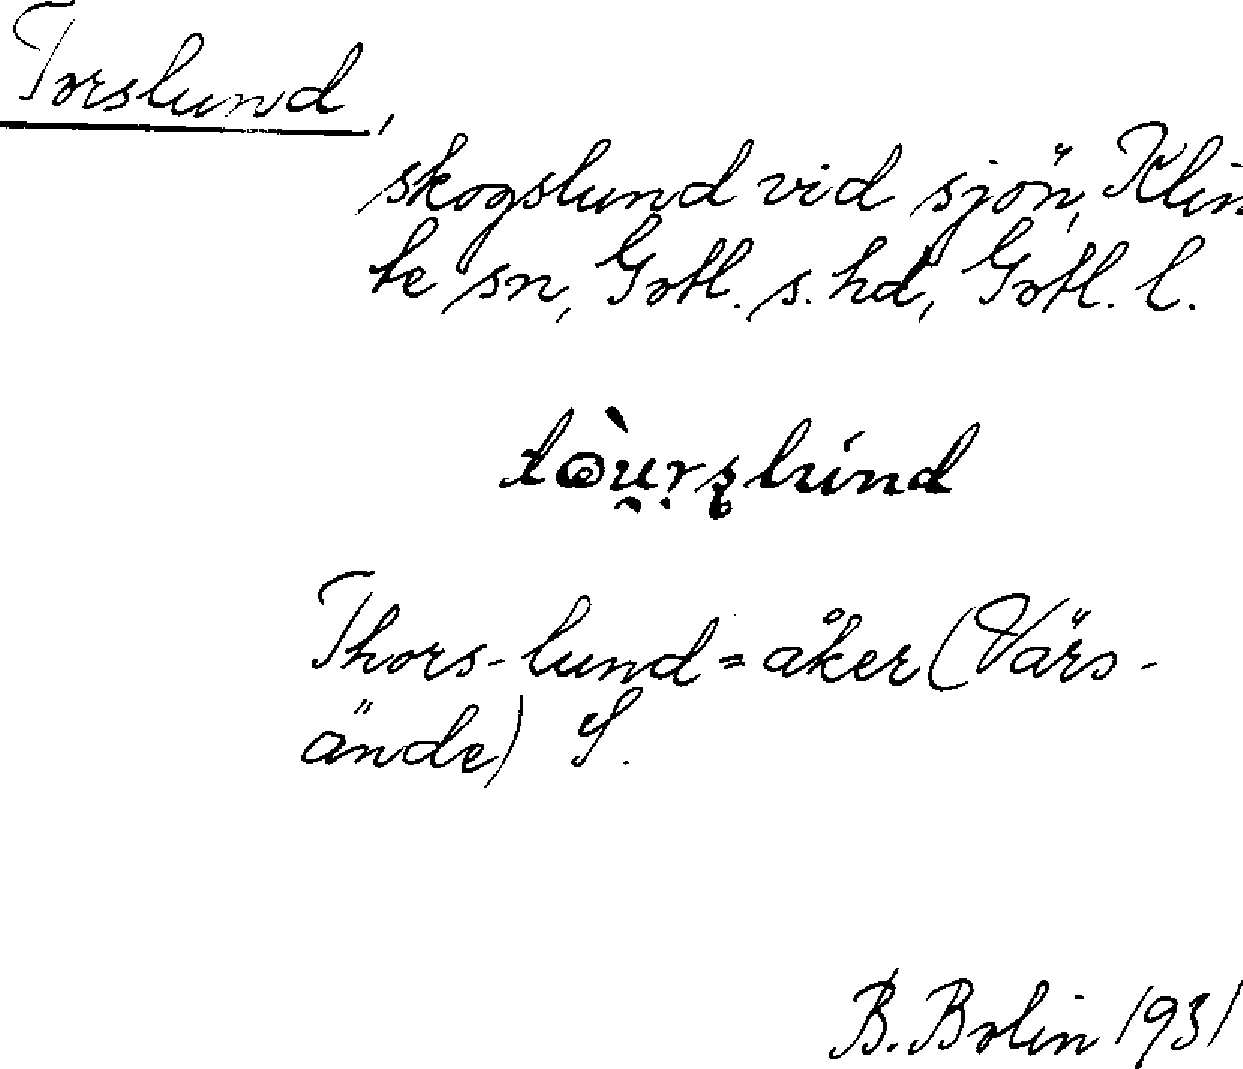 Torslund,
skogslund vid sjön, Klin
te sn, Gotl. s. hd, Gotl. l.
tòu̯rslúnd
Thors-lund=åker (Värs-
ände) S.
B. Bolin 1931